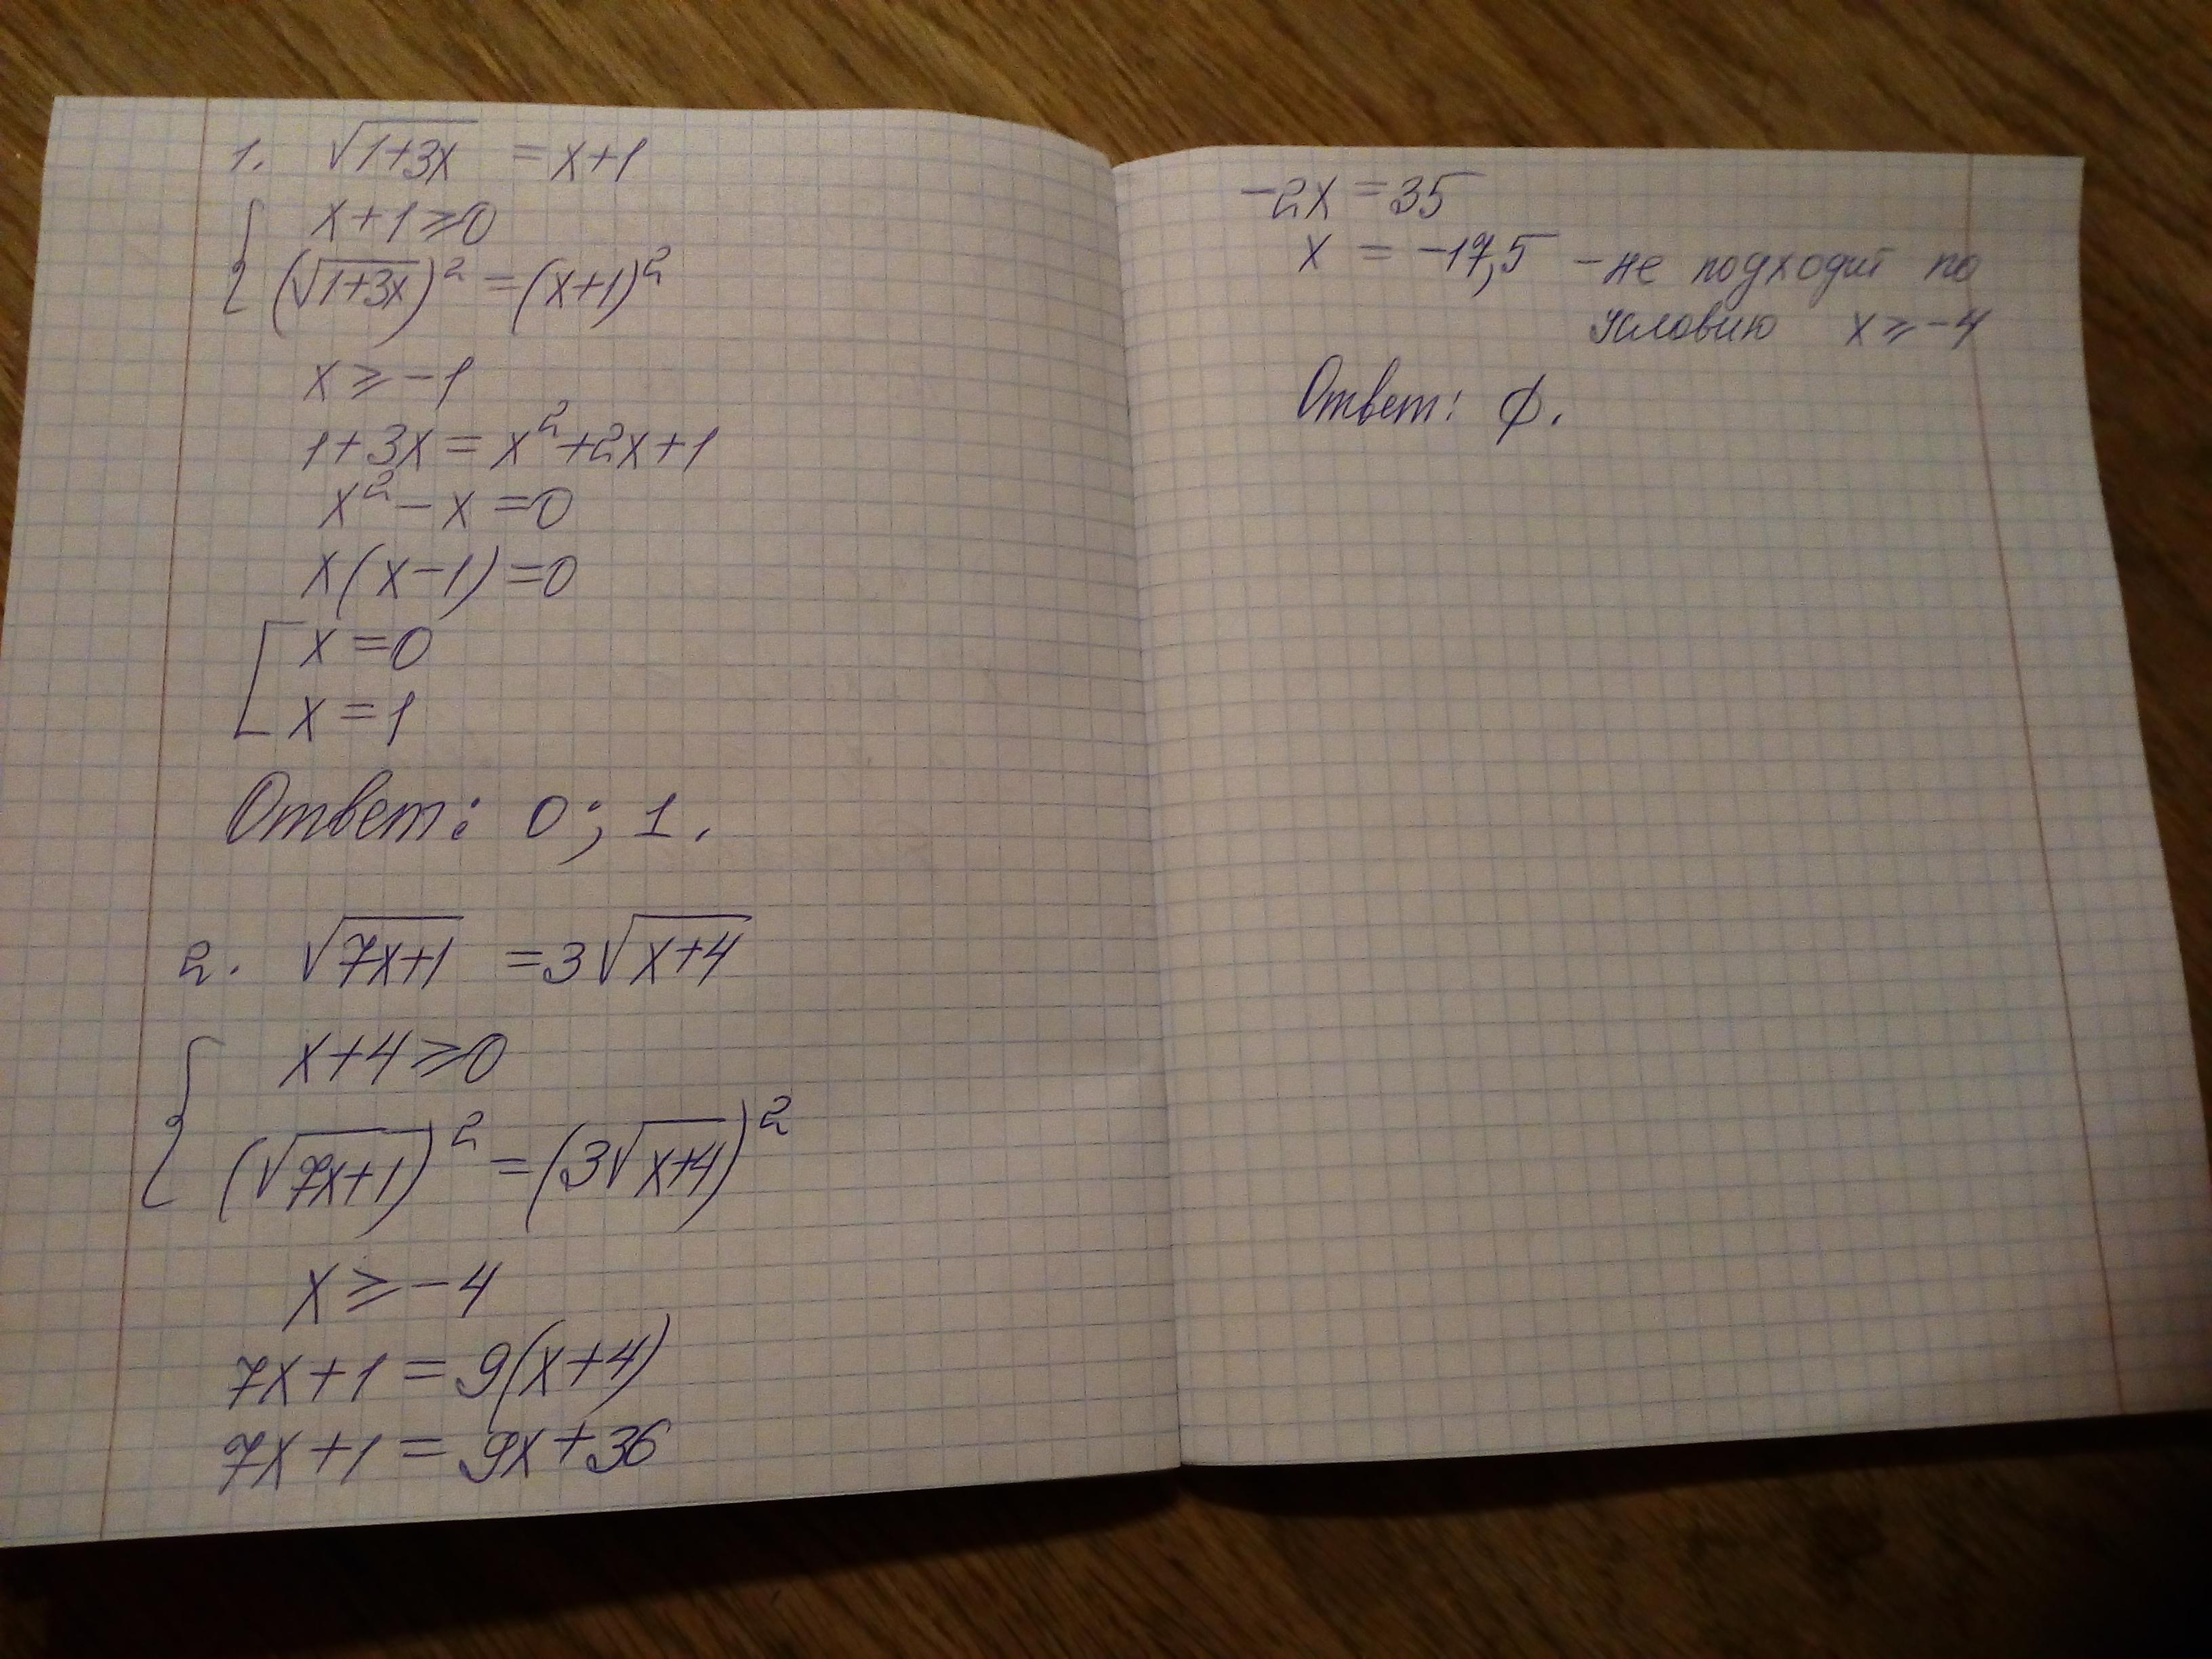 1. √1+3x = x+1
{ x+1⩾0
(√1+3x)² = (x+1)²
x ⩾ -1
1+3x = x²+2x+1
x² - x = 0
x(x-1) = 0
[ x = 0
x = 1
Ответ: 0; 1.
2. √7x+1 = 3√x+4
{ x+4⩾0
(√7x+1)² = (3√x+4)²
x ⩾ -4
7x+1 = 9(x+4)
7x+1 = 9x+36
-2x = 35
x = -17,5 - не подходит по
условию x ⩾ -4
Ответ: ∅.